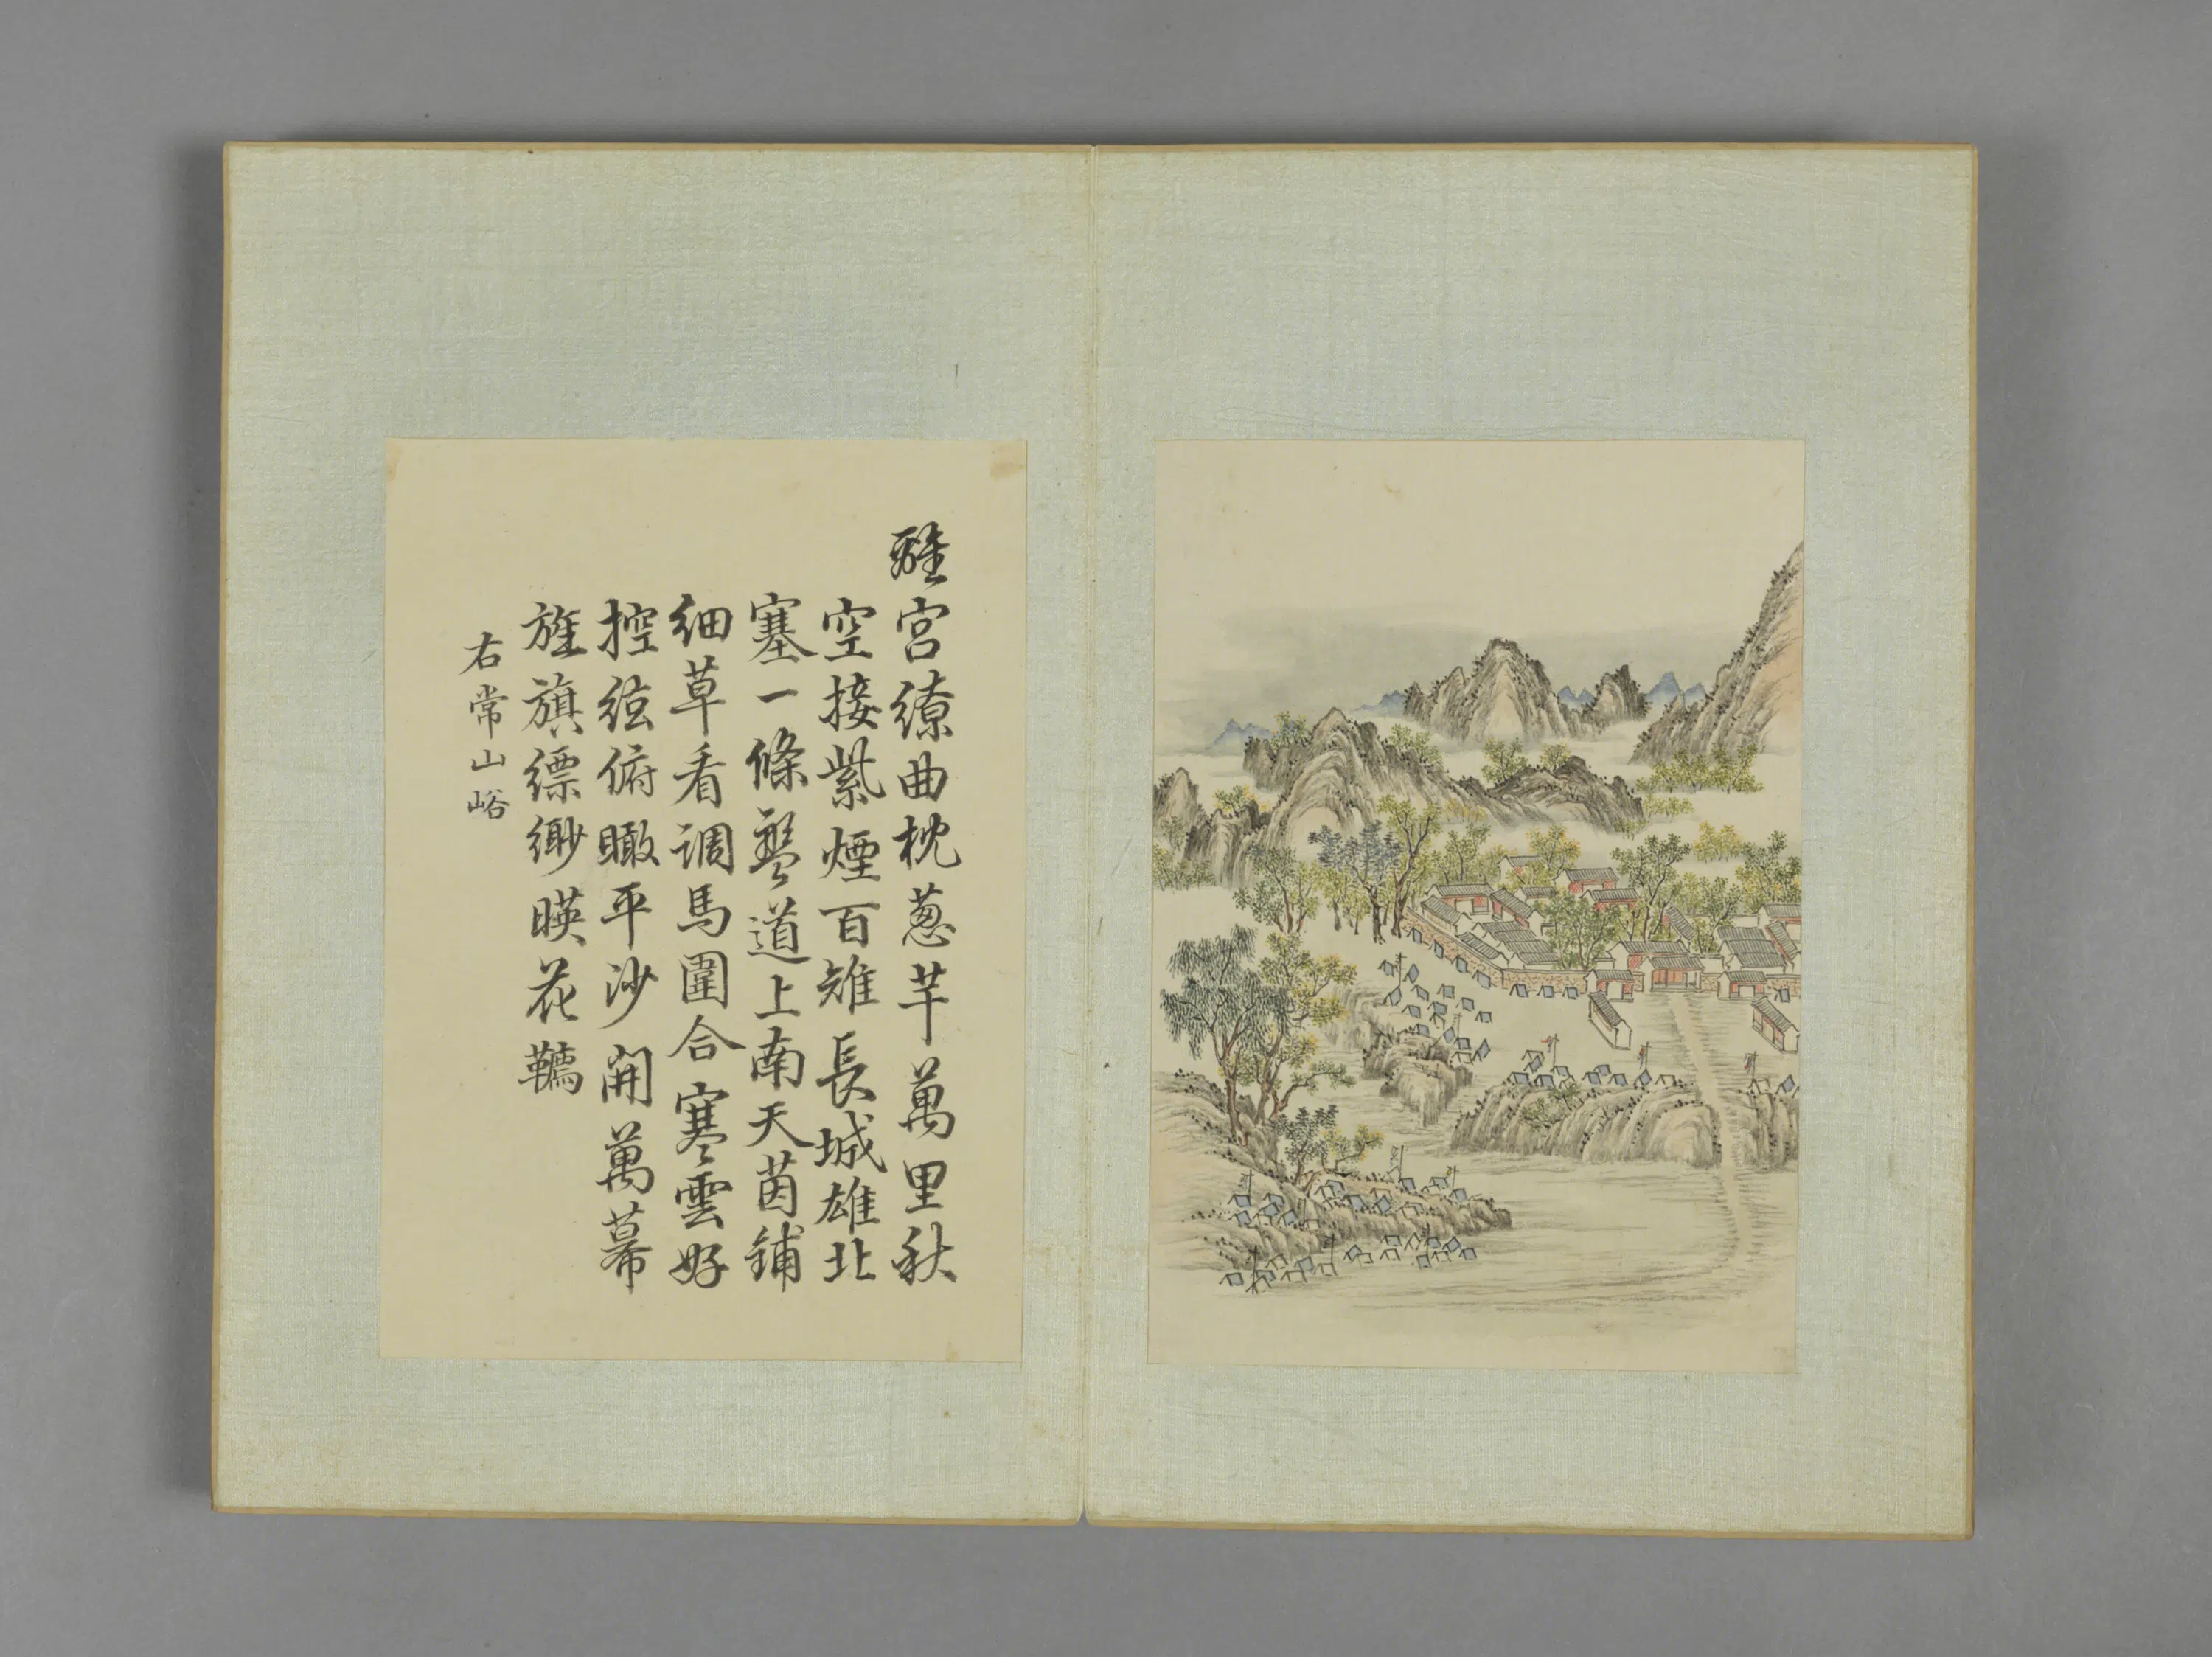 離宮繚曲枕蔥芊萬里秋
空接紫煙百雉長城雄北
塞一條盤道上南天茵鋪
細草看調馬圍合寒雲好
控弦俯瞰平沙開萬幕
旌旗縹緲暎花韉
右常山峪